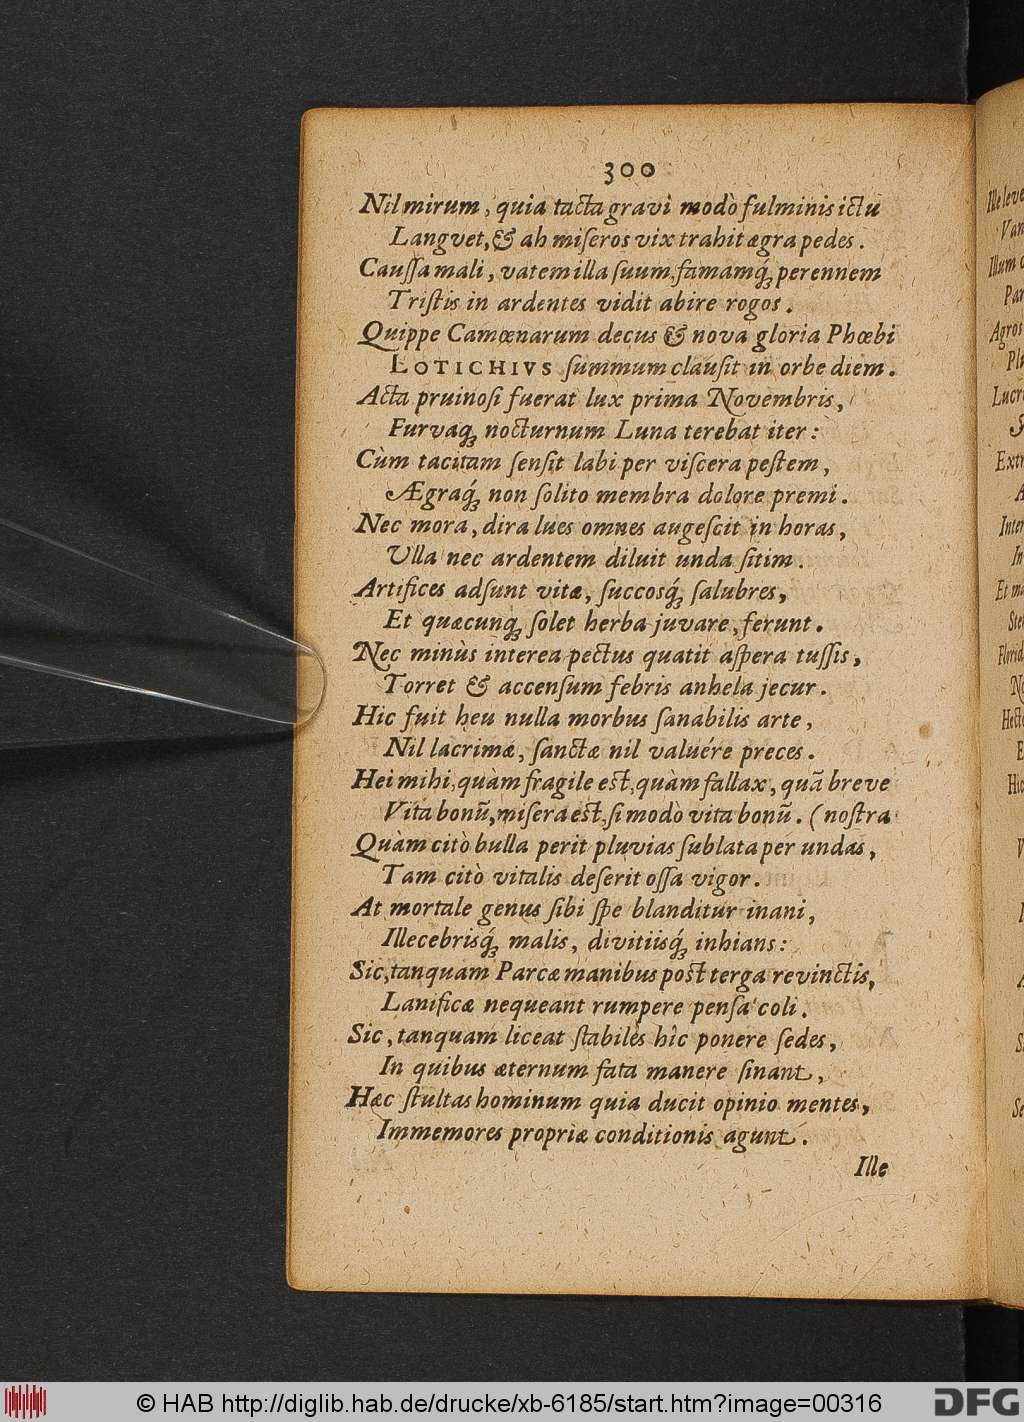 300
Nil mirum, quia tacta gravi modò fulminis ictu
Langvet, & ah miseros vix trahit ægra pedes.
Caussa mali, vatem illa suum, famamq́; perennem
Tristis in ardentes vidit abire rogos.
Quippe Camœnarum decus & nova gloria Phœbi
LOTICHIVS summum clausit in orbe diem.
Acta pruinosi fuerat lux prima Novembris,
Furvaq; nocturnum Luna terebat iter:
Cùm tacitam sensit labi per viscera pestem,
Ægraq́; non solito membra dolore premi.
Nec mora, dira lues omnes augescit in horas,
Ulla nec ardentem diluit unda sitim.
Artifices adsunt vitæ, succosq́; salubres,
Et quæcunq; solet herba juvare, ferunt.
Nec minùs interea pectus quatit aspera tussis,
Torret & accensum febris anhela jecur.
Hic fuit heu nulla morbus sanabilis arte,
Nil lacrimæ, sanctæ nil valuére preces.
Hei mihi, quàm fragile est, quàm fallax, quã breve
Vita bonũ, misera est, si modò vita bonũ. (nostra
Quàm citò bulla perit pluvias sublata per undas,
Tam citò vitalis deserit ossa vigor.
At mortale genus sibi spe blanditur inani,
Illecebrisq́; malis, divitiisq́; inhians:
Sic, tanquam Parcæ manibus post terga revinctis,
Lanificæ nequeant rumpere pensa coli.
Sic, tanquam liceat stabiles hîc ponere sedes,
In quibus æternum fata manere sinant,
Hæc stultas hominum quia ducit opinio mentes,
Immemores propriæ conditionis agunt.
Ille
© HAB http://diglib.hab.de/drucke/xb-6185/start.htm?image=00316
DFG